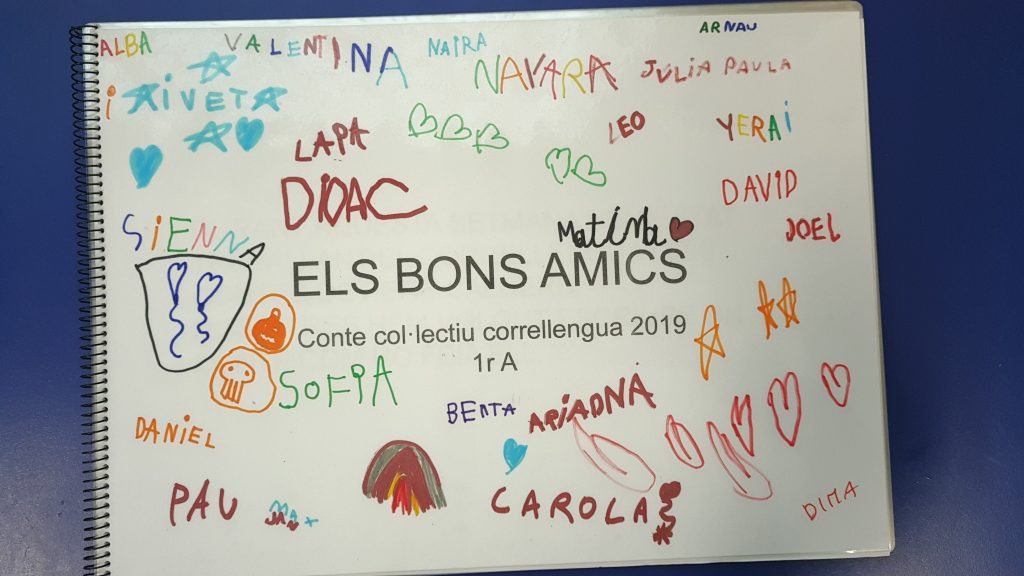 ALBA
VALENTINA
NAIRA
ARNAU
NAVARA
JULIA PAULA
i AIVETA
LAPA
LEO
YERAI
DIDAC
DAVID
SiENNA
JOEL
ELS BONS AMICS
Conte col·lectiu correllengua 2019
1r A
SOFiA
BERTA
ARiADNA
DANiEL
PAU
JAN
CAROLA
DIMA